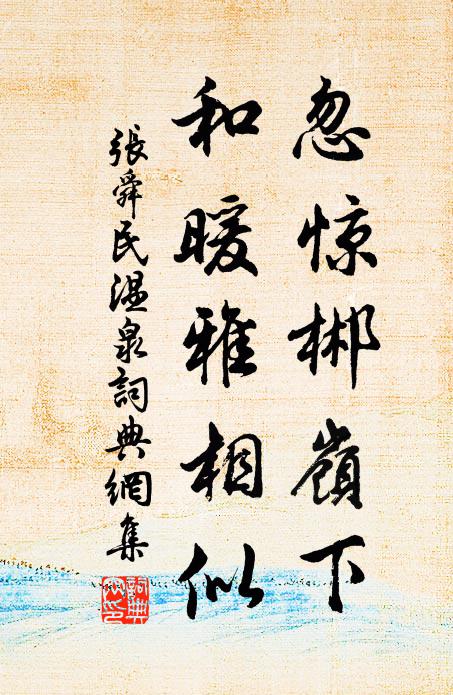 忽惊郴嶺下
和暖雅相似
張舜民温泉詞典網集